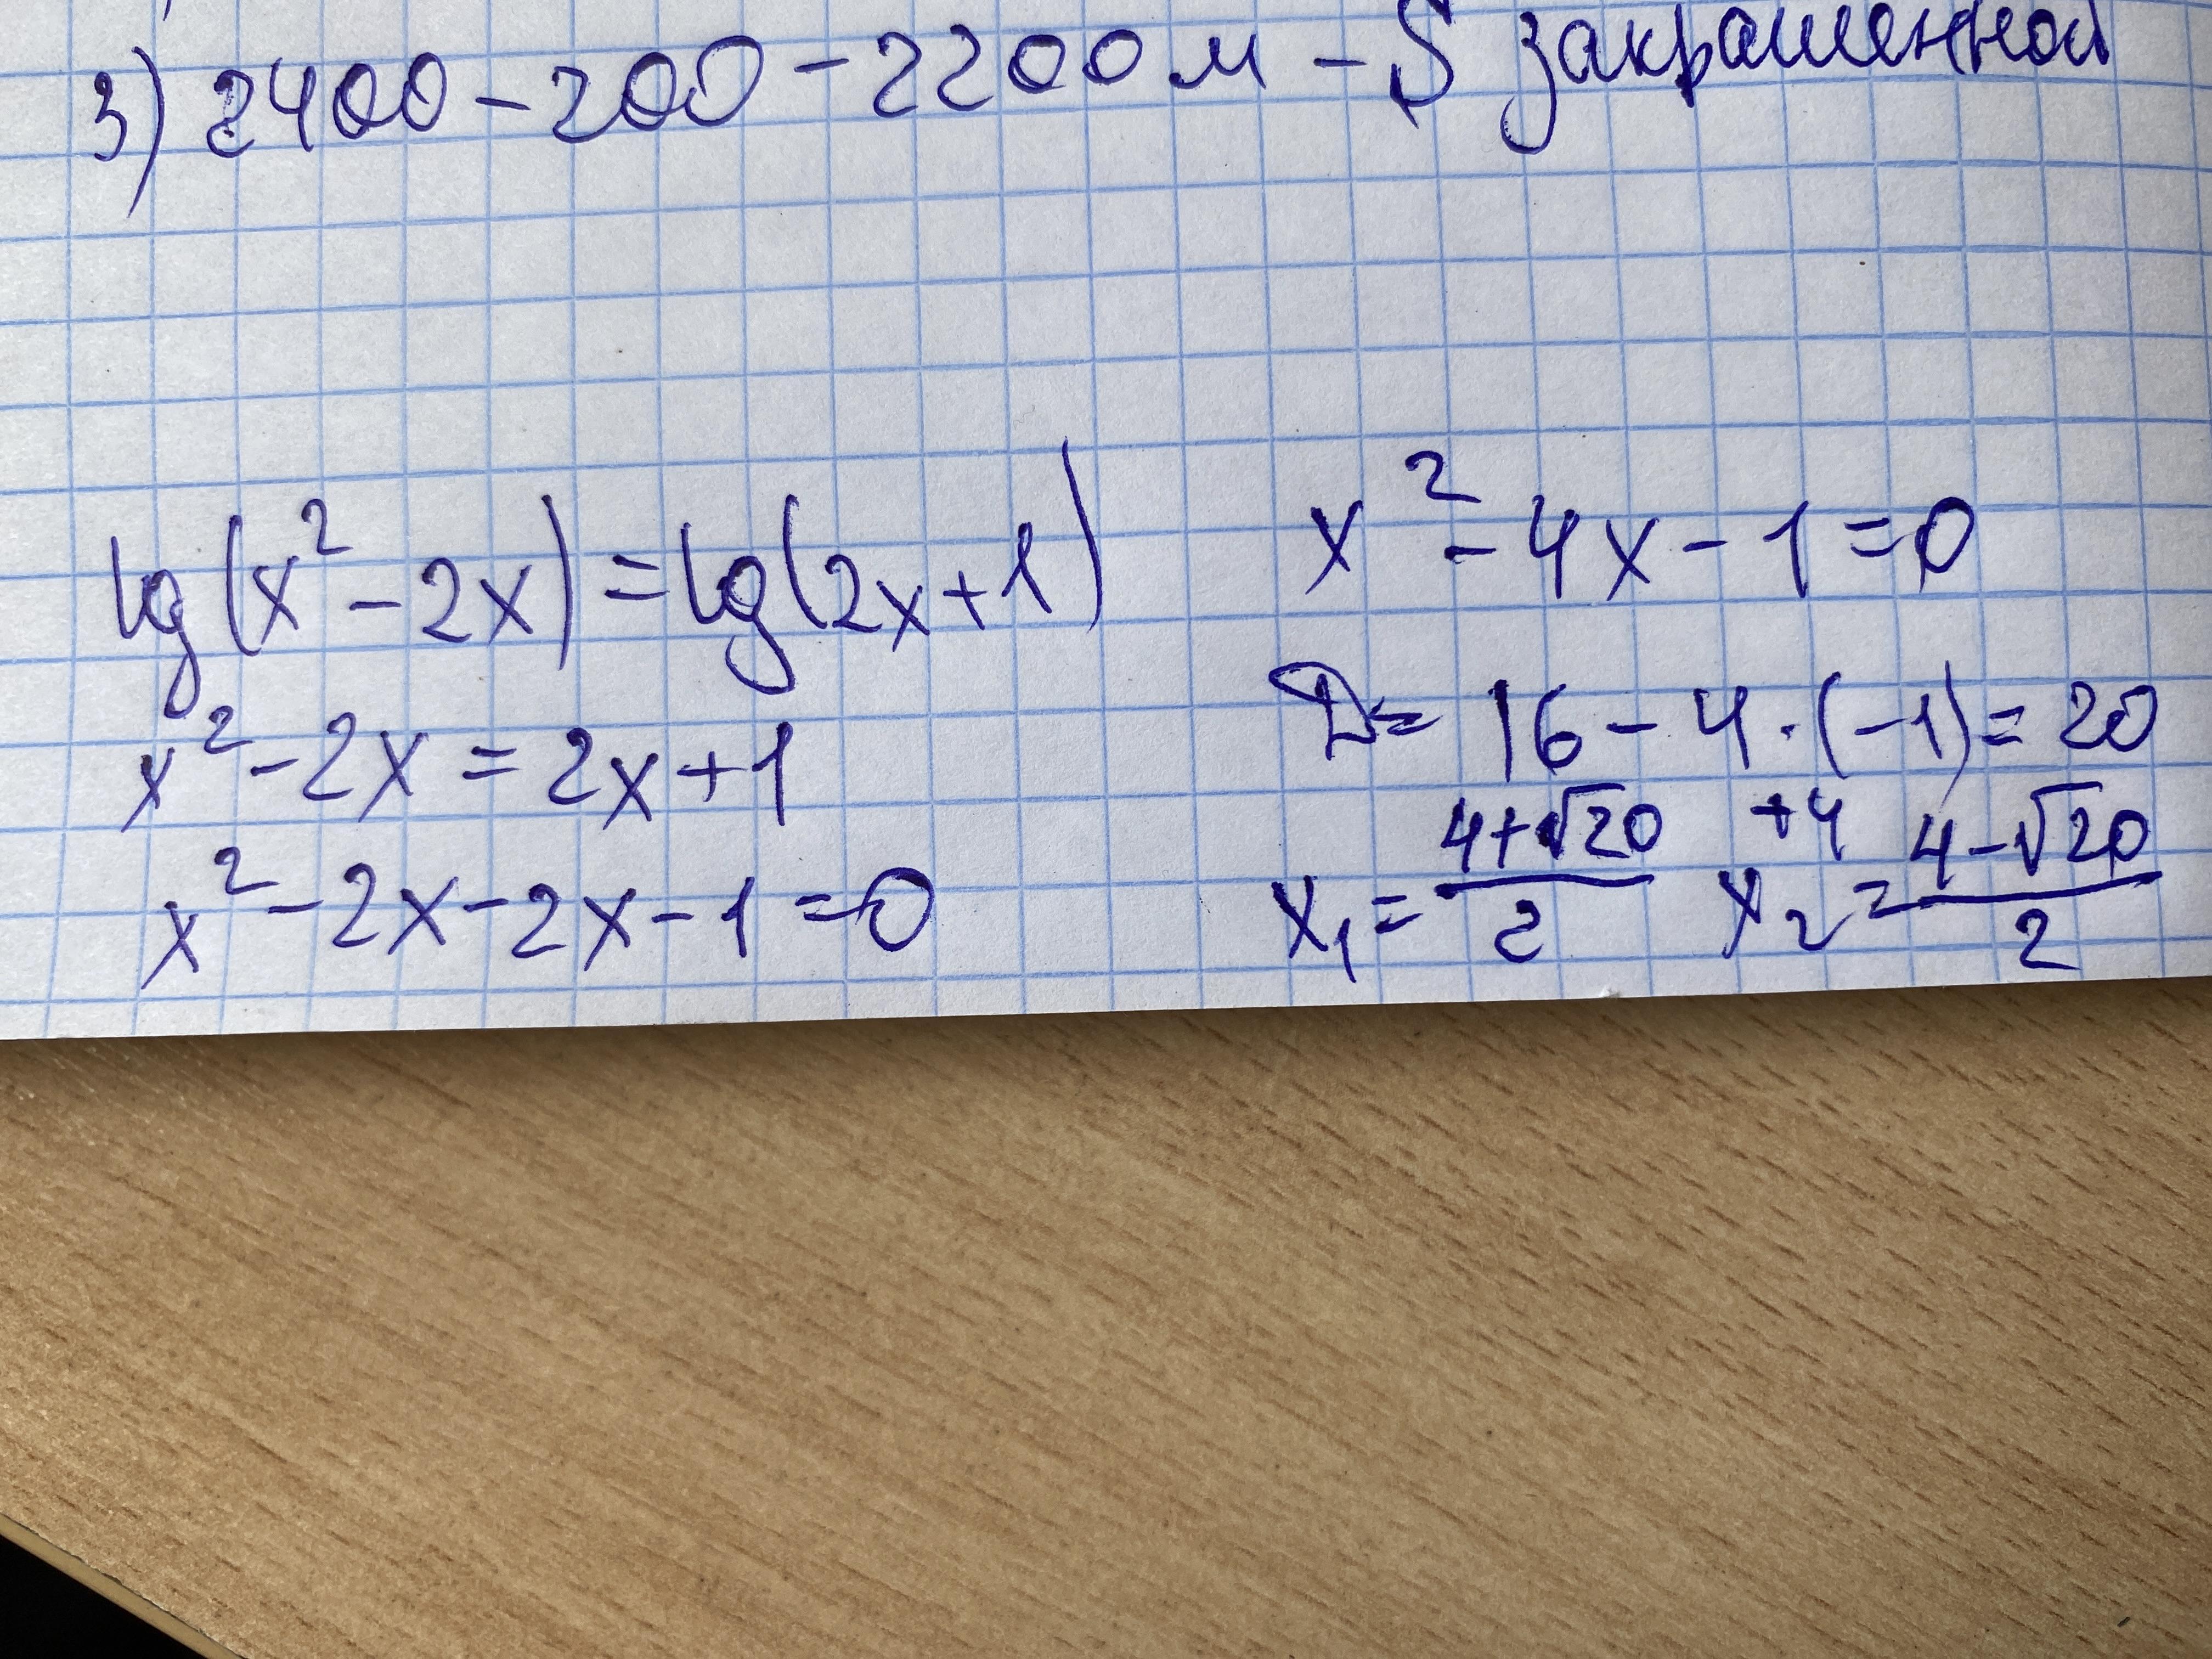 3) 2400 - 200 - 2200 м - S закрашенной
lg(x² - 2x) = lg(2x+1)
x² - 2x = 2x + 1
x² - 2x - 2x - 1 = 0
x² - 4x - 1 = 0
D = 16 - 4 · (-1) = 20
+4
x₁ = (4+√20)/2 x₂ = (4-√20)/2